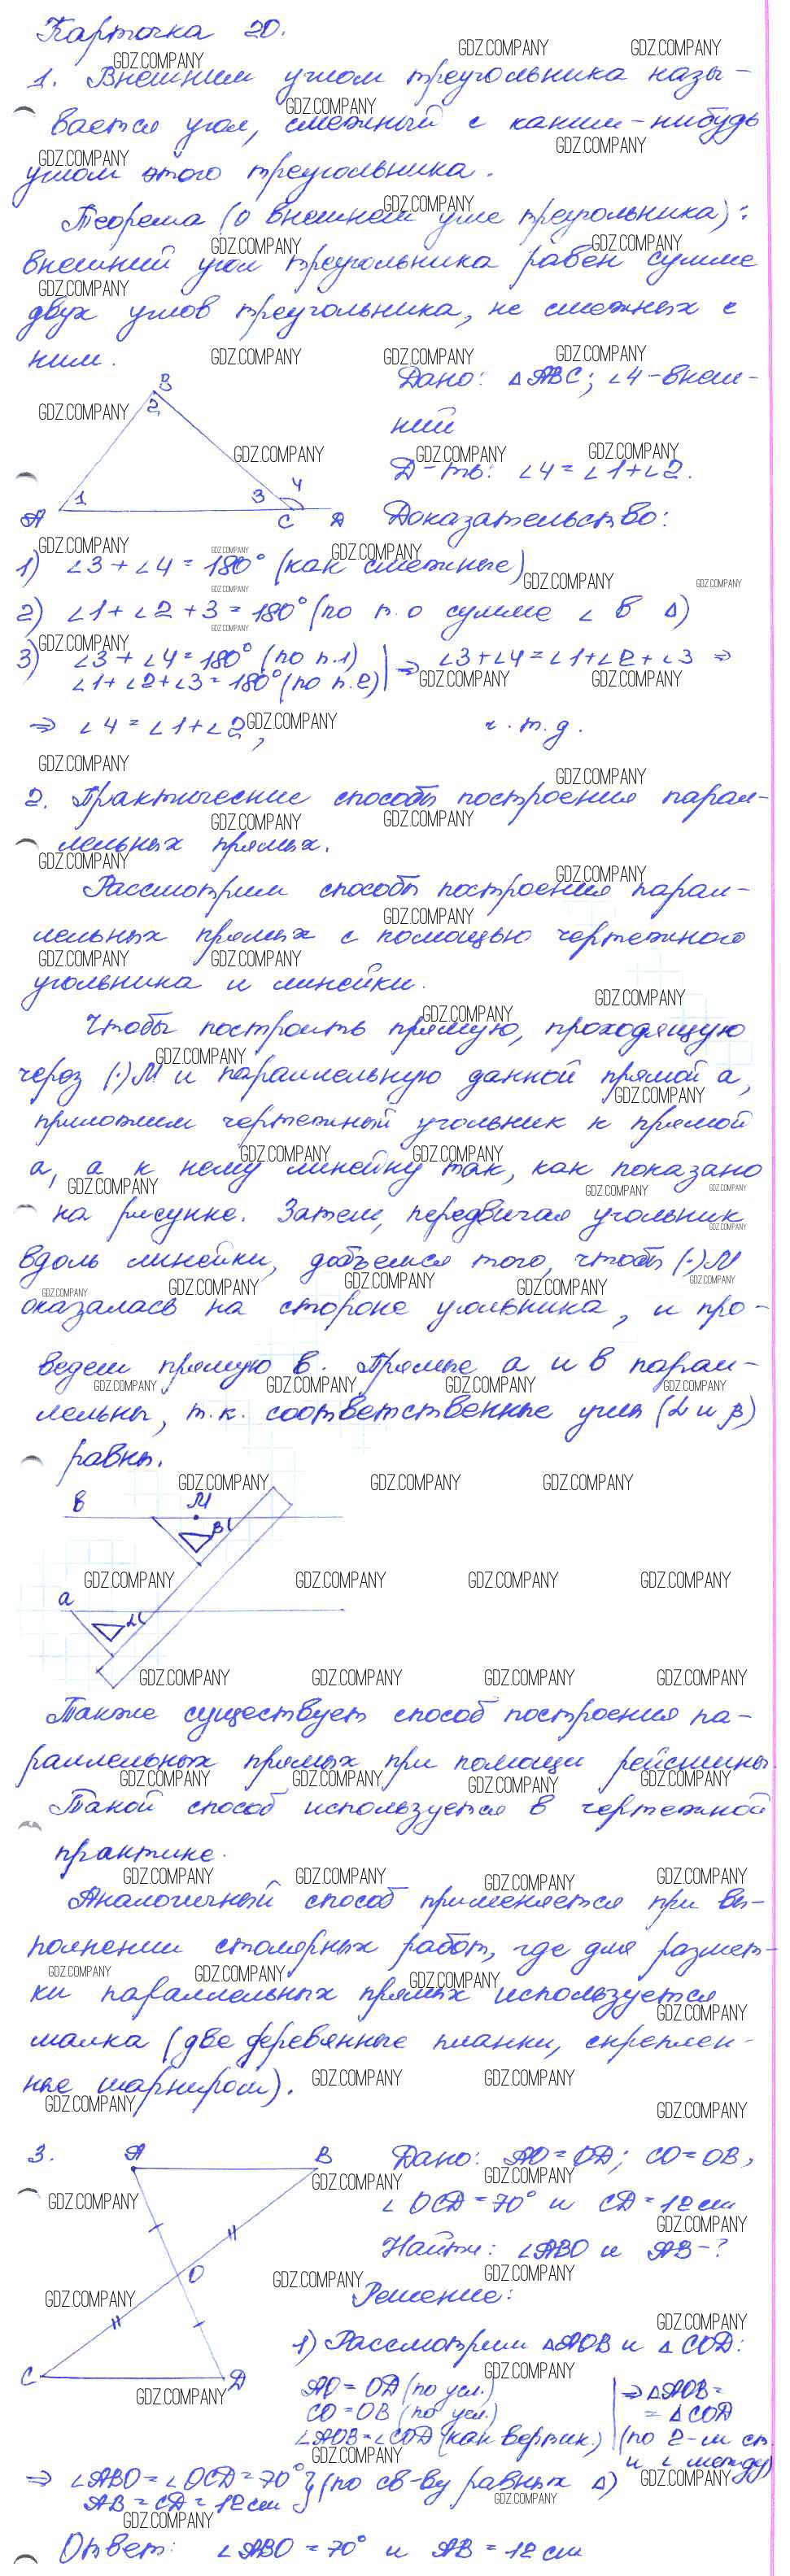 Карточка 20.
1. Внешним углом треугольника назы-
вается угол, смежный с каким-нибудь
углом этого треугольника.
Теорема (о внешнем угле треугольника):
внешний угол треугольника равен сумме
двух углов треугольника, не смежных с
ним.
B
2
1
3
4
A
C
D
Дано: △ABC; ∠4-внеш-
ний
Д-ть: ∠4=∠1+∠2.
Доказательство:
1) ∠3+∠4=180° (как смежные)
2) ∠1+∠2+3=180° (по т.о сумме ∠ в △)
3) ∠3+∠4=180° (по п.1)
∠1+∠2+∠3=180° (по п.2) | ⇒ ∠3+∠4=∠1+∠2+∠3 ⇒
⇒ ∠4=∠1+∠2, ч.т.д.
2. Практические способы построения парал-
лельных прямых.
Рассмотрим способы построения парал-
лельных прямых с помощью чертежного
угольника и линейки.
Чтобы построить прямую, проходящую
через (·)M и параллельную данной прямой a,
приложим чертежный угольник к прямой
a, а к нему линейку так, как показано
на рисунке. Затем, передвигая угольник
вдоль линейки, добъемся того, чтобы (·)M
оказалась на стороне угольника, и про-
ведем прямую b. Прямые a и b парал-
лельны, т.к. соответственные углы (α и β)
равны.
b
M
β
a
α
Также существует способ построения па-
раллельных прямых при помощи рейсшины.
Такой способ используется в чертежной
практике.
Аналогичный способ применяется при вы-
полнении столярных работ, где для размет-
ки параллельных прямых используется
малка (две деревянные планки, скреплен-
ные шарниром).
3.
A
B
O
C
D
Дано: AO=OD; CO=OB,
∠OCD=70° и CD=12см
Найти: ∠ABO и AB-?
Решение:
1) Рассмотрим △AOB и △COD:
AO=OD (по усл.)
CO=OB (по усл.)
∠AOB=∠COD (как вертик.)
⇒ △AOB=
=△COD
(по 2-м ст.
и ∠ между)
⇒ ∠ABO=∠OCD=70°
AB=CD=12см } (по св-ву равных △)
Ответ: ∠ABO=70° и AB=12см
GDZ.COMPANY